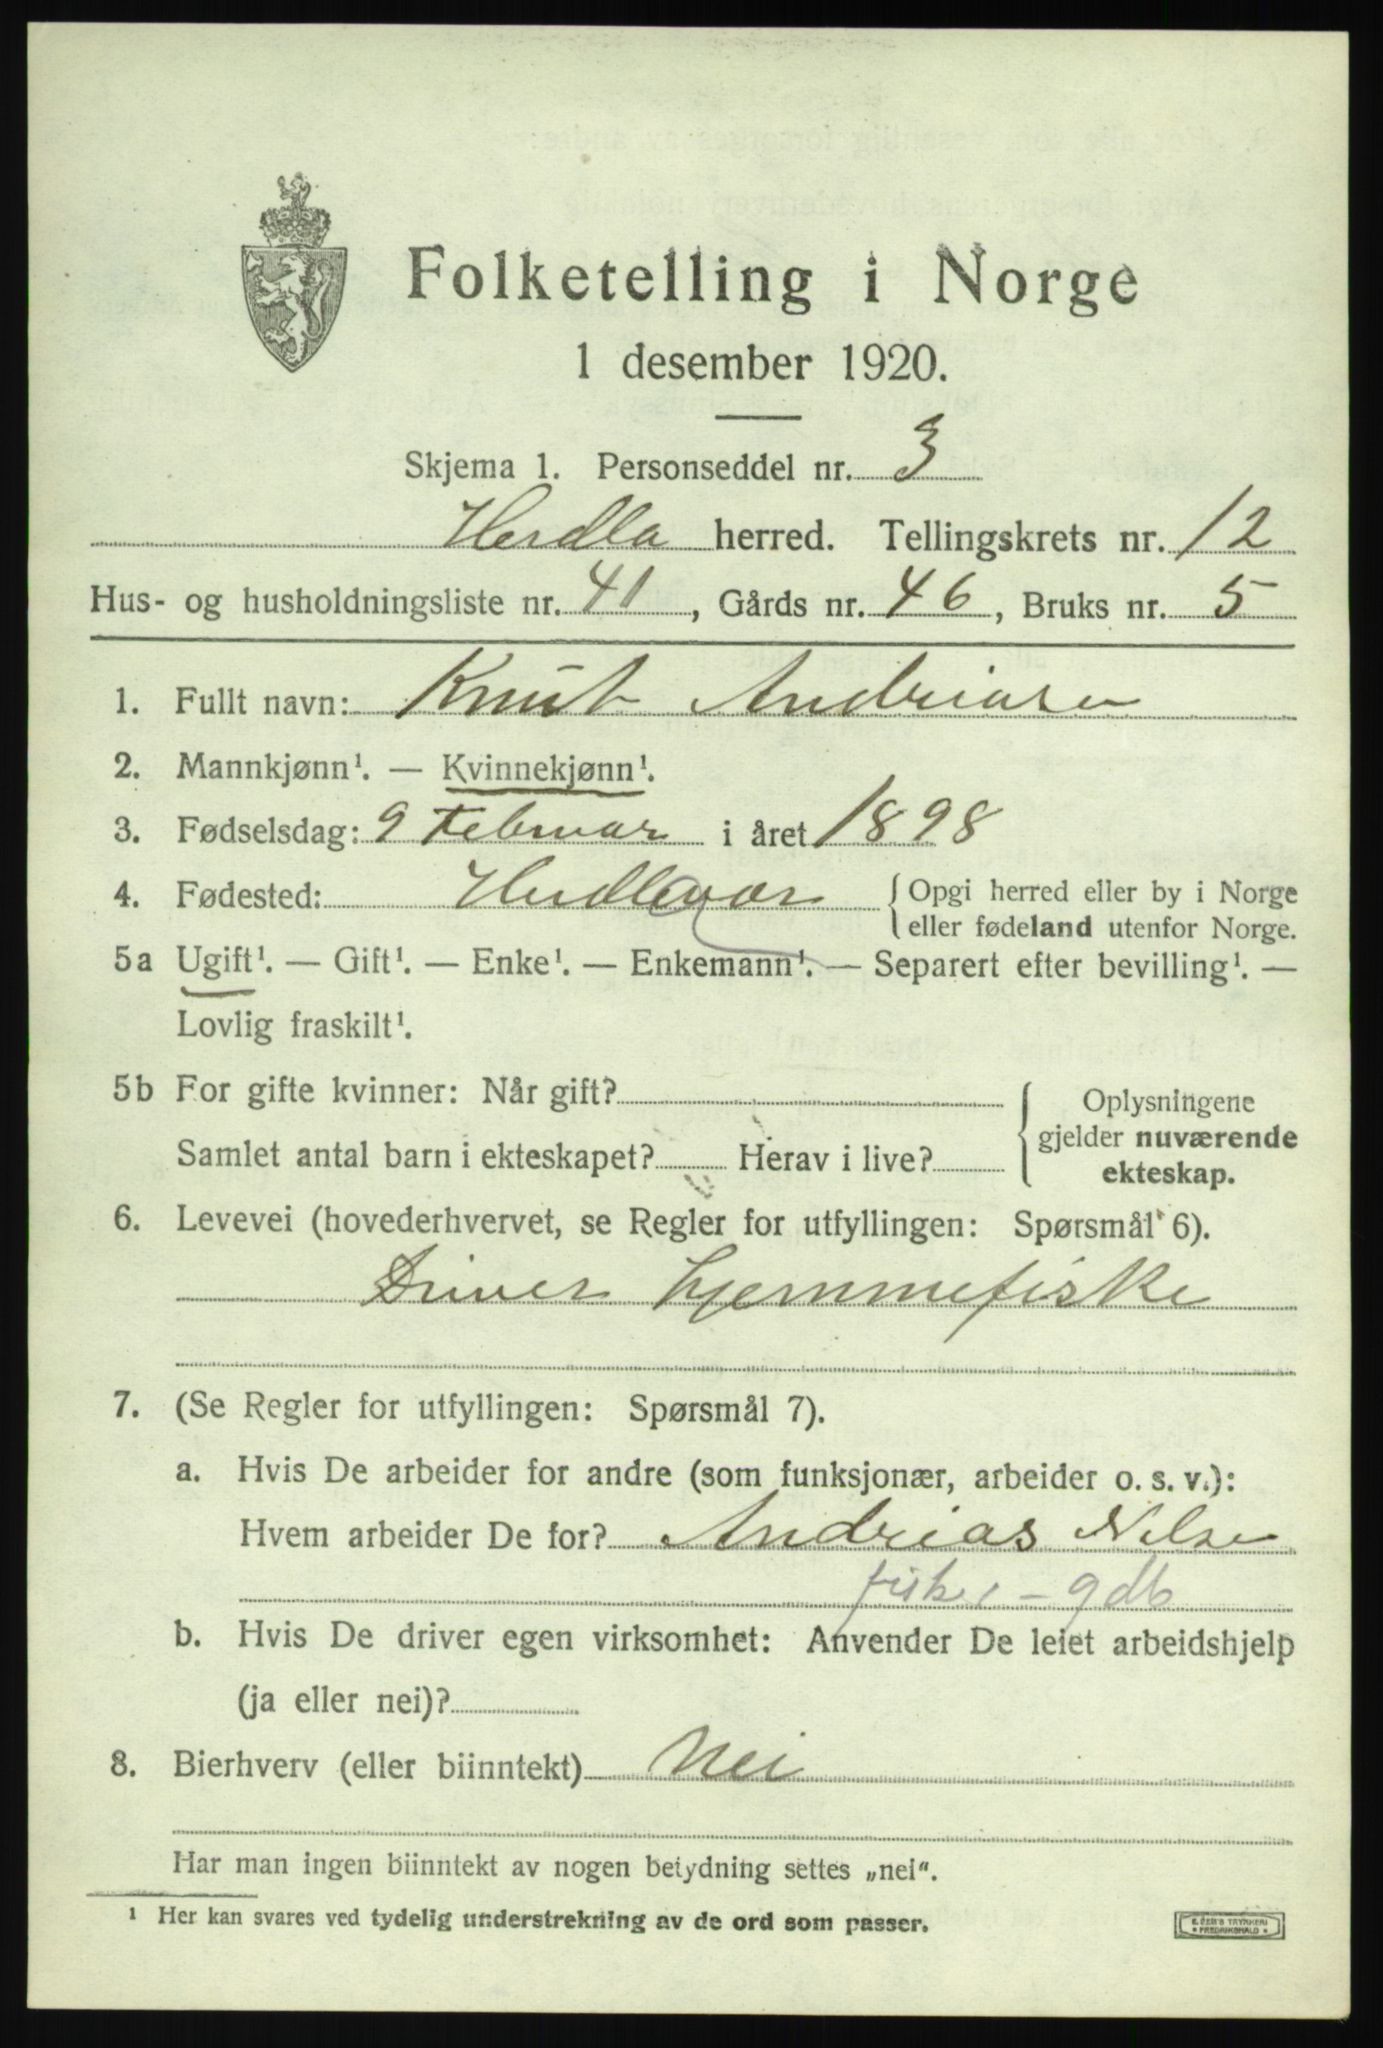 Folketelling i Norge
1 desember 1920.
Skjema 1. Personseddel nr. 3
Herdla herred. Tellingskrets nr. 12
Hus- og husholdningsliste nr. 41, Gårds nr. 46, Bruks nr. 5
1. Fullt navn: Knut Andriasen
2. Mannkjønn¹. — Kvinnekjønn¹.
3. Fødselsdag: 9 Februar i året 1898
4. Fødested: Herdlevær { Opgi herred eller by i Norge
eller fødeland utenfor Norge.
5a Ugift¹. — Gift¹. — Enke¹. — Enkemann¹. — Separert efter bevilling¹. —
Lovlig fraskilt¹.
5b For gifte kvinner: Når gift? { Oplysningene
gjelder nuværende
Samlet antal barn i ekteskapet? Herav i live?
ekteskap.
6. Levevei (hovederhvervet, se Regler for utfyllingen: Spørsmål 6).
Driver hjemmefiske
7. (Se Regler for utfyllingen: Spørsmål 7).
a. Hvis De arbeider for andre (som funksjonær, arbeider o. s. v.):
Hvem arbeider De for? Andrias Nilse
fisker - gdb
b. Hvis De driver egen virksomhet: Anvender De leiet arbeidshjelp
(ja eller nei)?
8. Bierhverv (eller biinntekt) Nei
Har man ingen biinntekt av nogen betydning settes „nei“.
¹ Her kan svares ved tydelig understrekning av de ord som passer.
TRYKKERI
FREDRIKSHALD